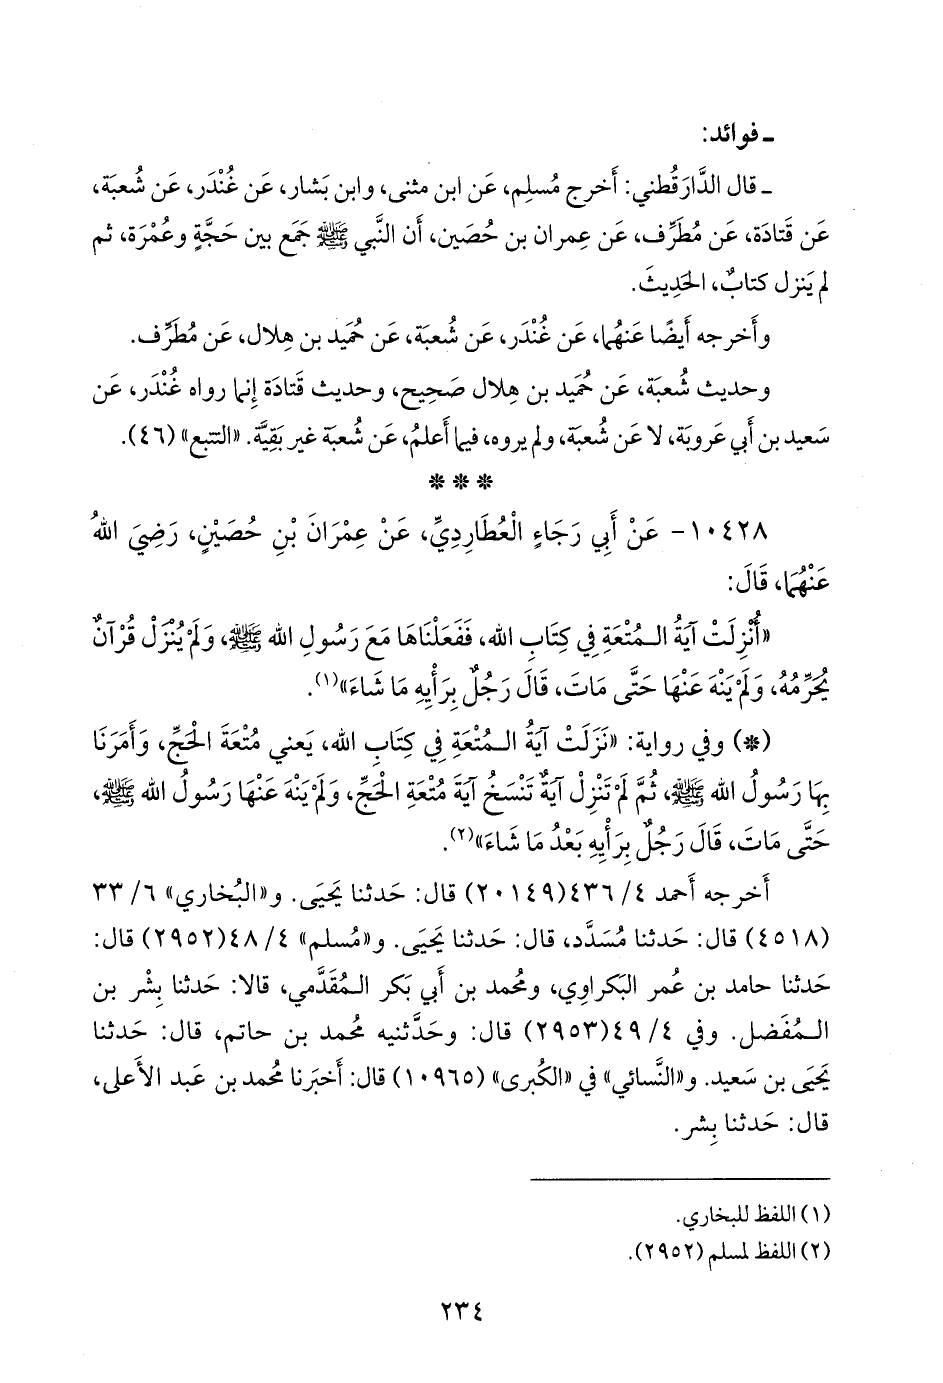 ـ فوائد:
ـ قال الدَّارَقُطني: أَخرج مُسلِم، عَن ابن مثنى، وابن بَشار، عَن غُنْدَر، عَن شُعبَة،
عَن قَتادَة، عَن مُطَرِّف، عَن عِمران بن حُصَين، أَن النَّبي ﷺ جَمَع بين حَجَّةٍ وعُمْرَة، ثم
لم يَنزل كتابٌ، الحَدِيثَ.
وأَخرجه أَيضًا عَنهُما، عَن غُنْدَر، عَن شُعبَة، عَن حُمَيد بن هِلال، عَن مُطَرِّف.
وحديث شُعبَة، عَن حُمَيد بن هِلال صَحيح، وحديث قَتادَة إِنما رواه غُنْدَر، عَن
سَعيد بن أَبي عَروبَة، لا عَن شُعبَة، ولم يروه، فيما أَعلمُ، عَن شُعبة غير بَقِيَّة. «التتبع» (٤٦).
* * *
١٠٤٢٨- عَنْ أَبِي رَجَاءٍ الْعُطَارِدِيِّ، عَنْ عِمْرَانَ بْنِ حُصَيْنٍ، رَضِيَ اللهُ
عَنْهُمَا، قَالَ:
«أُنْزِلَتْ آيَةُ الـمُتْعَةِ فِي كِتَابِ الله، فَفَعَلْنَاهَا مَعَ رَسُولِ الله ﷺ، وَلَمْ يُنْزَلْ قُرْآنٌ
يُحَرِّمُهُ، وَلَمْ يَنْهَ عَنْهَا حَتَّى مَاتَ، قَالَ رَجُلٌ بِرَأْيِهِ مَا شَاءَ»(١).
(*) وفي رواية: «نَزَلَتْ آيَةُ الـمُتْعَةِ فِي كِتَابِ الله، يَعني مُتْعَةَ الْحَجِّ، وَأَمَرَنَا
بِهَا رَسُولُ الله ﷺ، ثُمَّ لَمْ تَنْزِلْ آيَةٌ تَنْسَخُ آيَةَ مُتْعَةِ الحَجِّ، وَلَمْ يَنْهَ عَنْهَا رَسُولُ الله ﷺ،
حَتَّى مَاتَ، قَالَ رَجُلٌ بِرَأْيِهِ بَعْدُ مَا شَاءَ»(٢).
أَخرجه أَحمد ٤/ ٤٣٦(٢٠١٤٩) قال: حَدثنا يَحيَى. و«البُخاري» ٦/ ٣٣
(٤٥١٨) قال: حَدثنا مُسَدَّد، قال: حَدثنا يَحيَى. و«مُسلم» ٤/ ٤٨(٢٩٥٢) قال:
حَدثنا حامد بن عُمر البَكراوِي، ومُحمد بن أَبي بَكر الـمُقَدَّمي، قالا: حَدثنا بِشْر بن
الـمُفَضل. وفي ٤/ ٤٩(٢٩٥٣) قال: وحَدَّثنيه مُحمد بن حاتم، قال: حَدثنا
يَحيَى بن سَعيد. و«النَّسائي» في «الكُبرى» (١٠٩٦٥) قال: أَخبَرنا مُحمد بن عَبد الأَعلى،
قال: حَدثنا بِشر.
(١) اللفظ للبخاري.
(٢) اللفظ لمسلم (٢٩٥٢).
٢٣٤